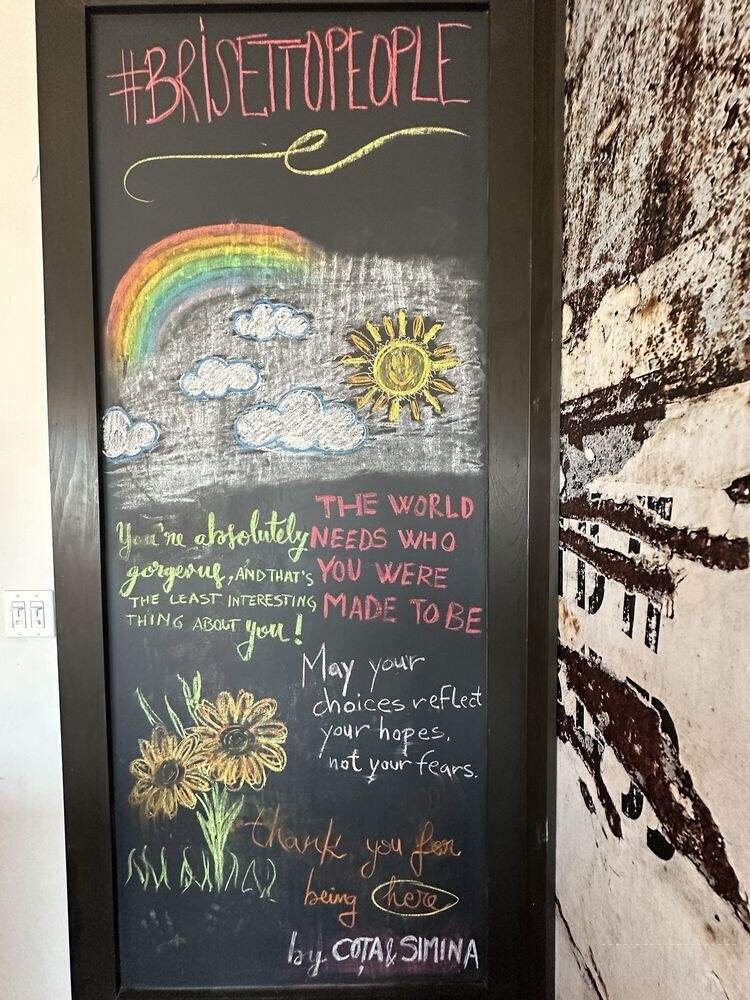 #BRISETTOPEOPLE
You're absolutely
gorgeous, AND THAT'S
THE LEAST INTERESTING
THING ABOUT you!
THE WORLD
NEEDS WHO
YOU WERE
MADE TO BE
May your
choices reflect
your hopes,
not your fears.
thank you for
being here
by COȚA & SIMINA